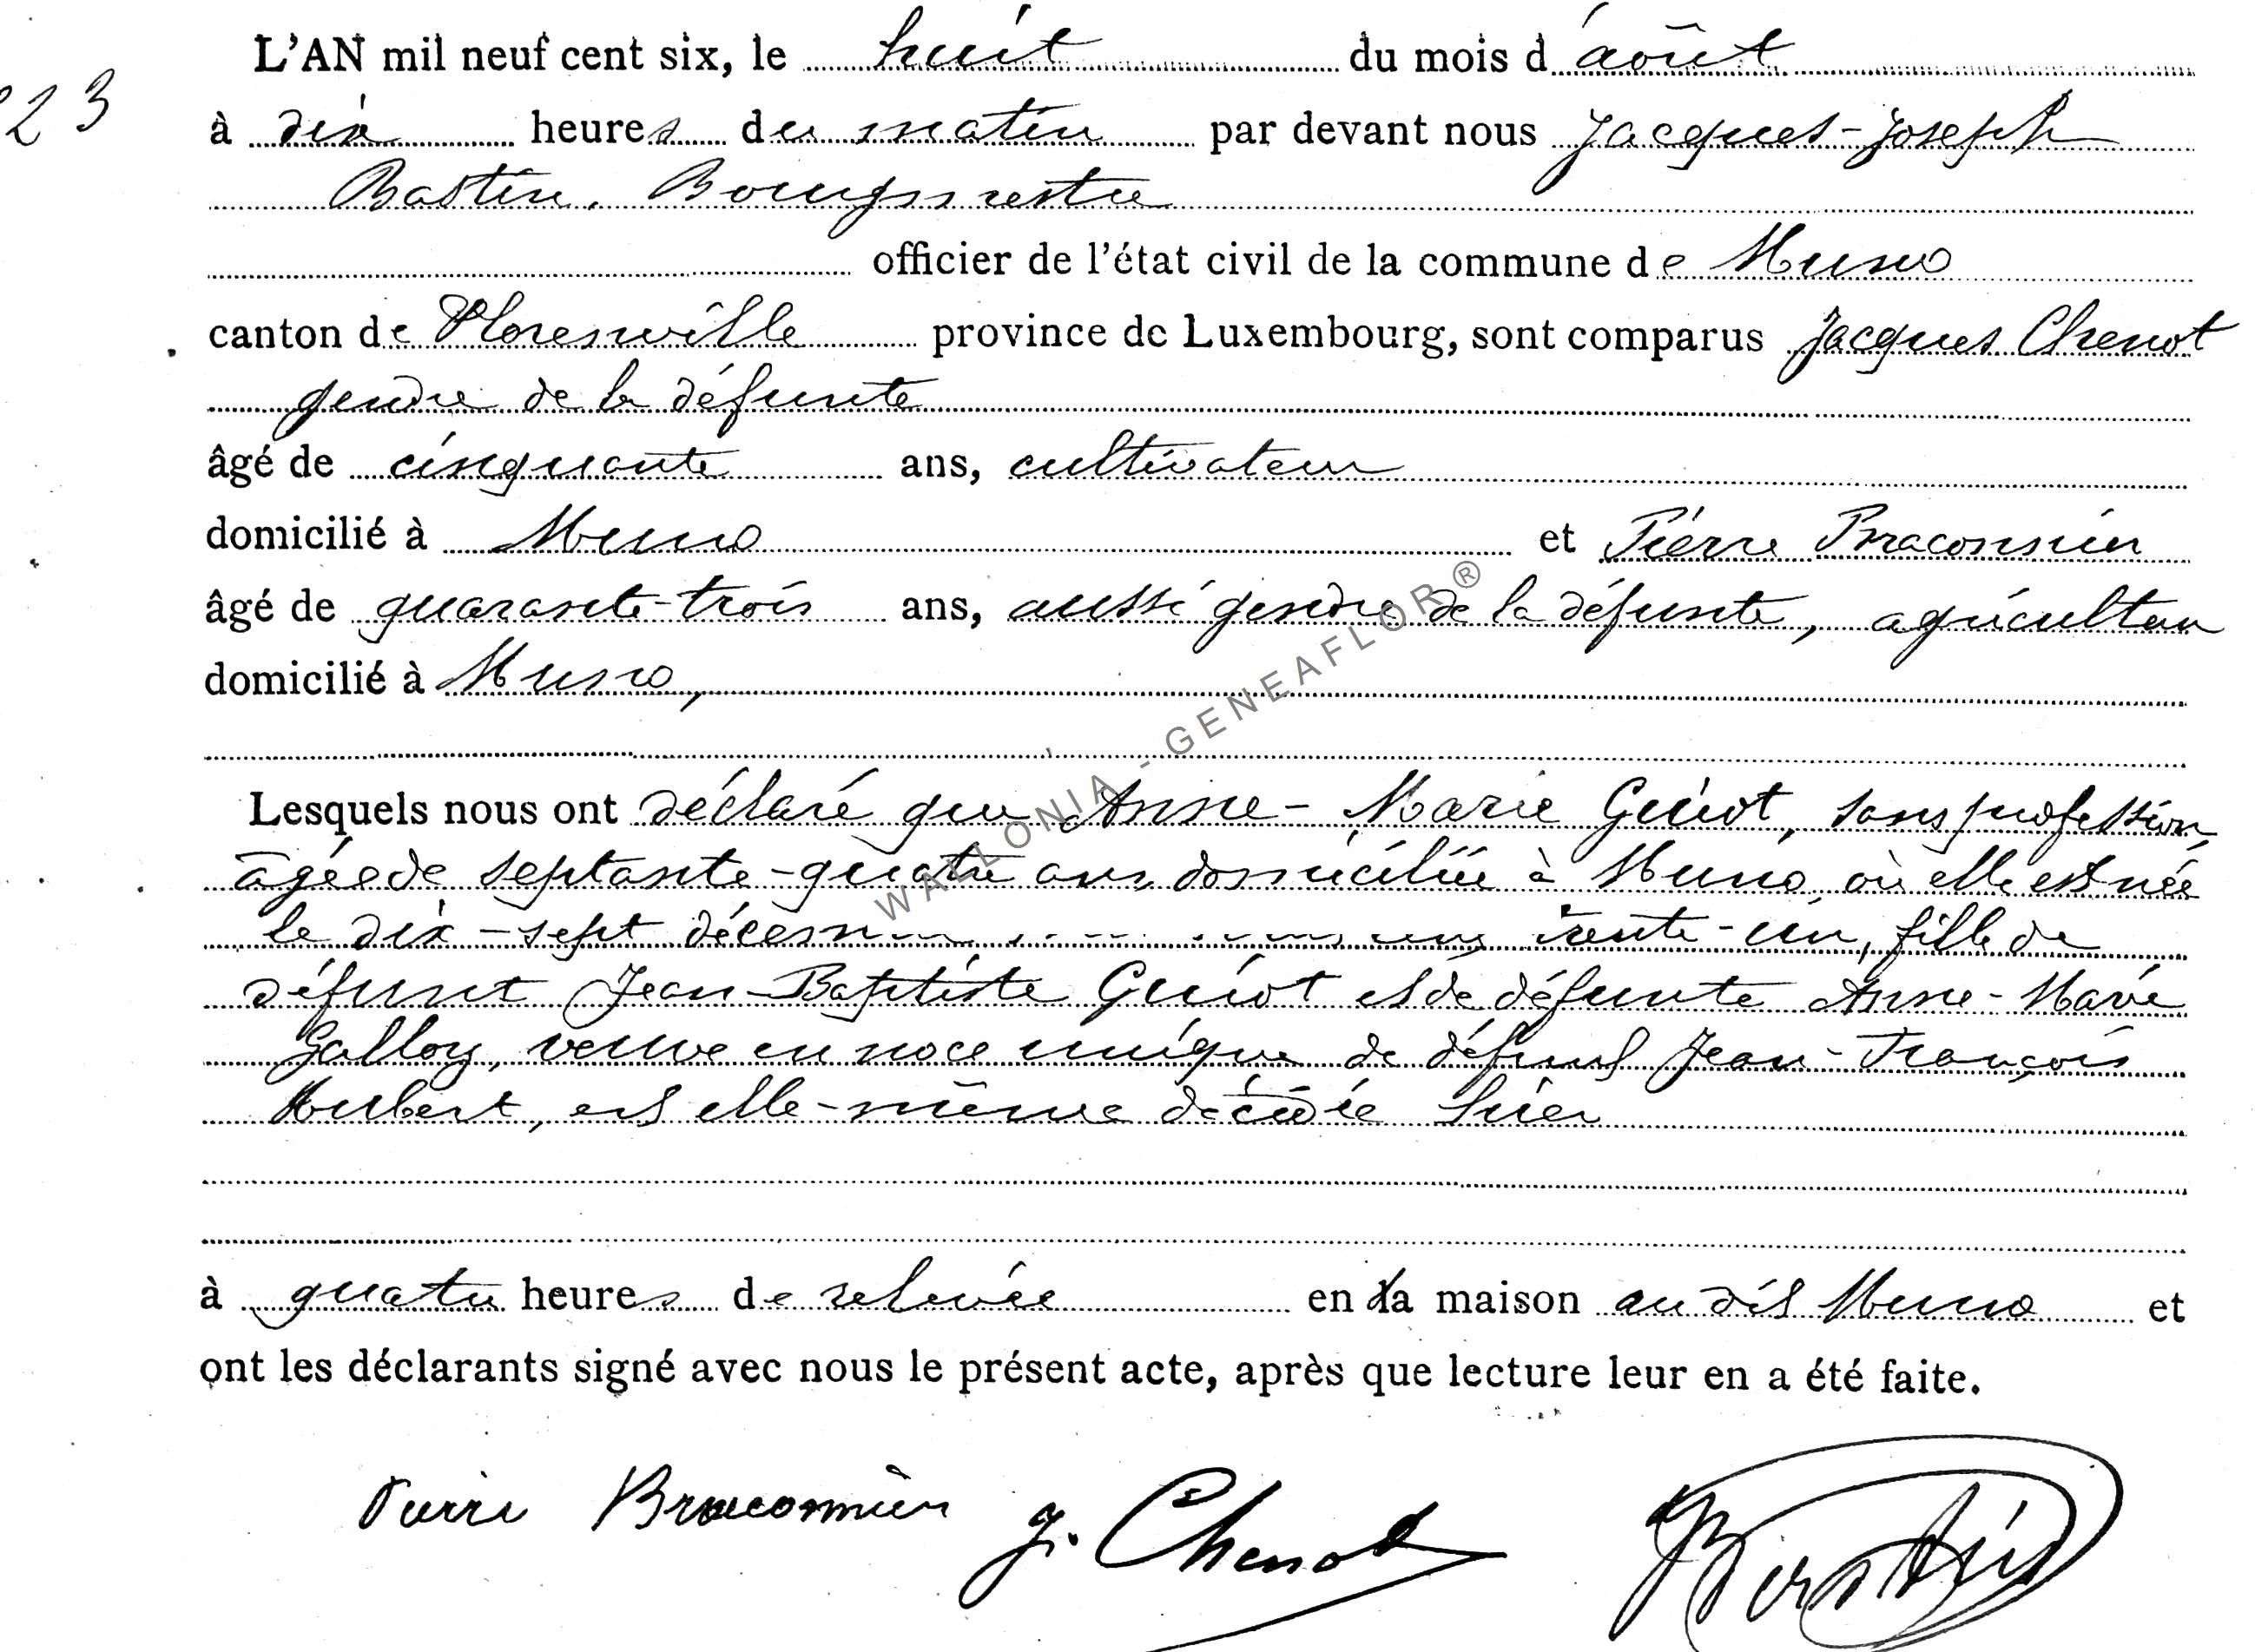 L'AN mil neuf cent six, le huit du mois d'août
23
à dix heures du matin par devant nous Jacques-Joseph
Bastin, Bourgmestre
officier de l'état civil de la commune de Muno
canton de Florenville province de Luxembourg, sont comparus Jacques Chenot
gendre de la défunte
âgé de cinquante ans, cultivateur
domicilié à Muno et Pierre Braconnier
âgé de quarante-trois ans, aussi gendre de la défunte, agriculteur
domicilié à Muno,
Lesquels nous ont déclaré que Anne-Marie Guiot, sans profession,
âgée de septante-quatre ans, domiciliée à Muno, où elle est née
le dix-sept trente-un, fille de
défunt Jean-Baptiste Guiot et de défunte Anne-Marie
Galloy, veuve en noce unique de défunt Jean-François
Hubert, est elle-même décédée hier
à quatre heures de relevée en sa maison au dit Muno et
ont les déclarants signé avec nous le présent acte, après que lecture leur en a été faite.
Pierre Braconnier J. Chenot Bastin
WALLONIA - GENEAFLOR®